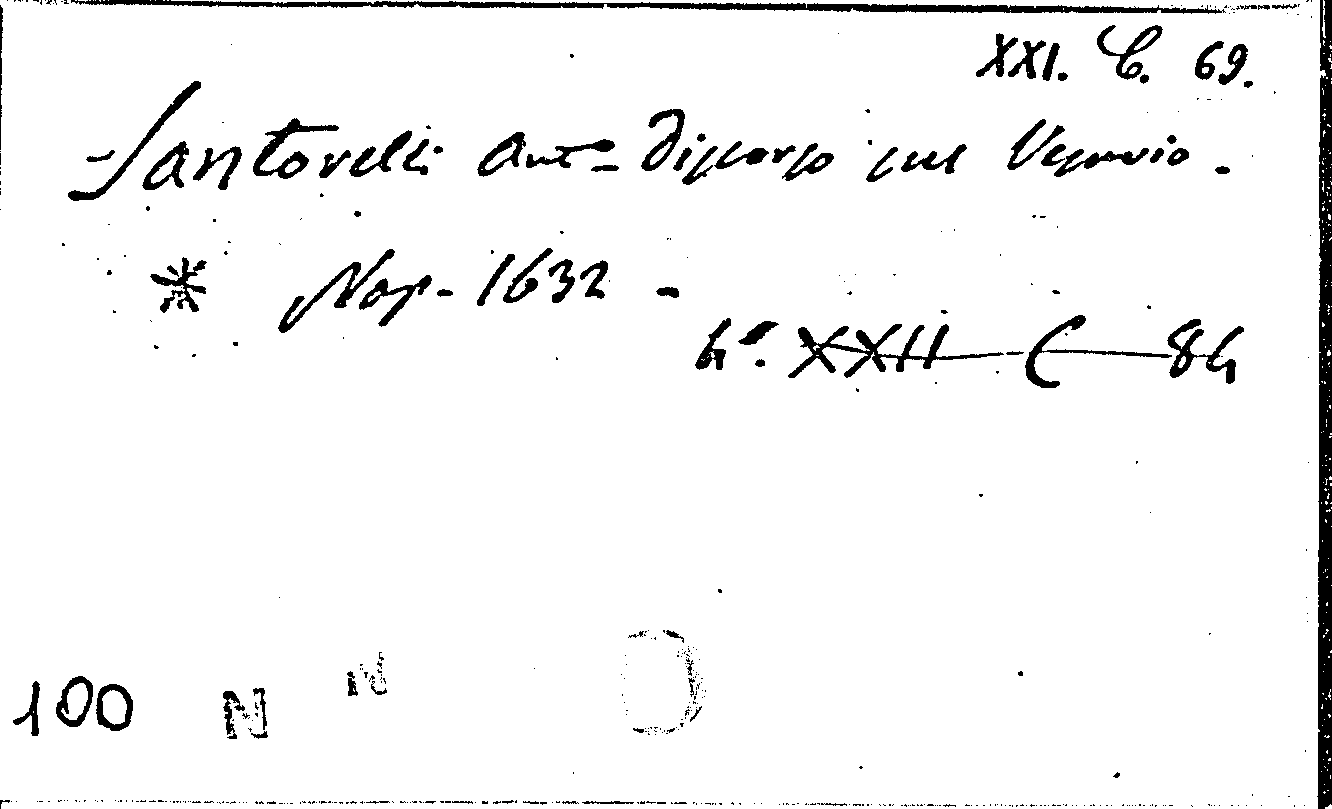 XXI. C. 69.
Santorelli Ant.º Discorso sul Vesuvio.
* Nap. 1632 -
4º. XXII C 84
100 N N D